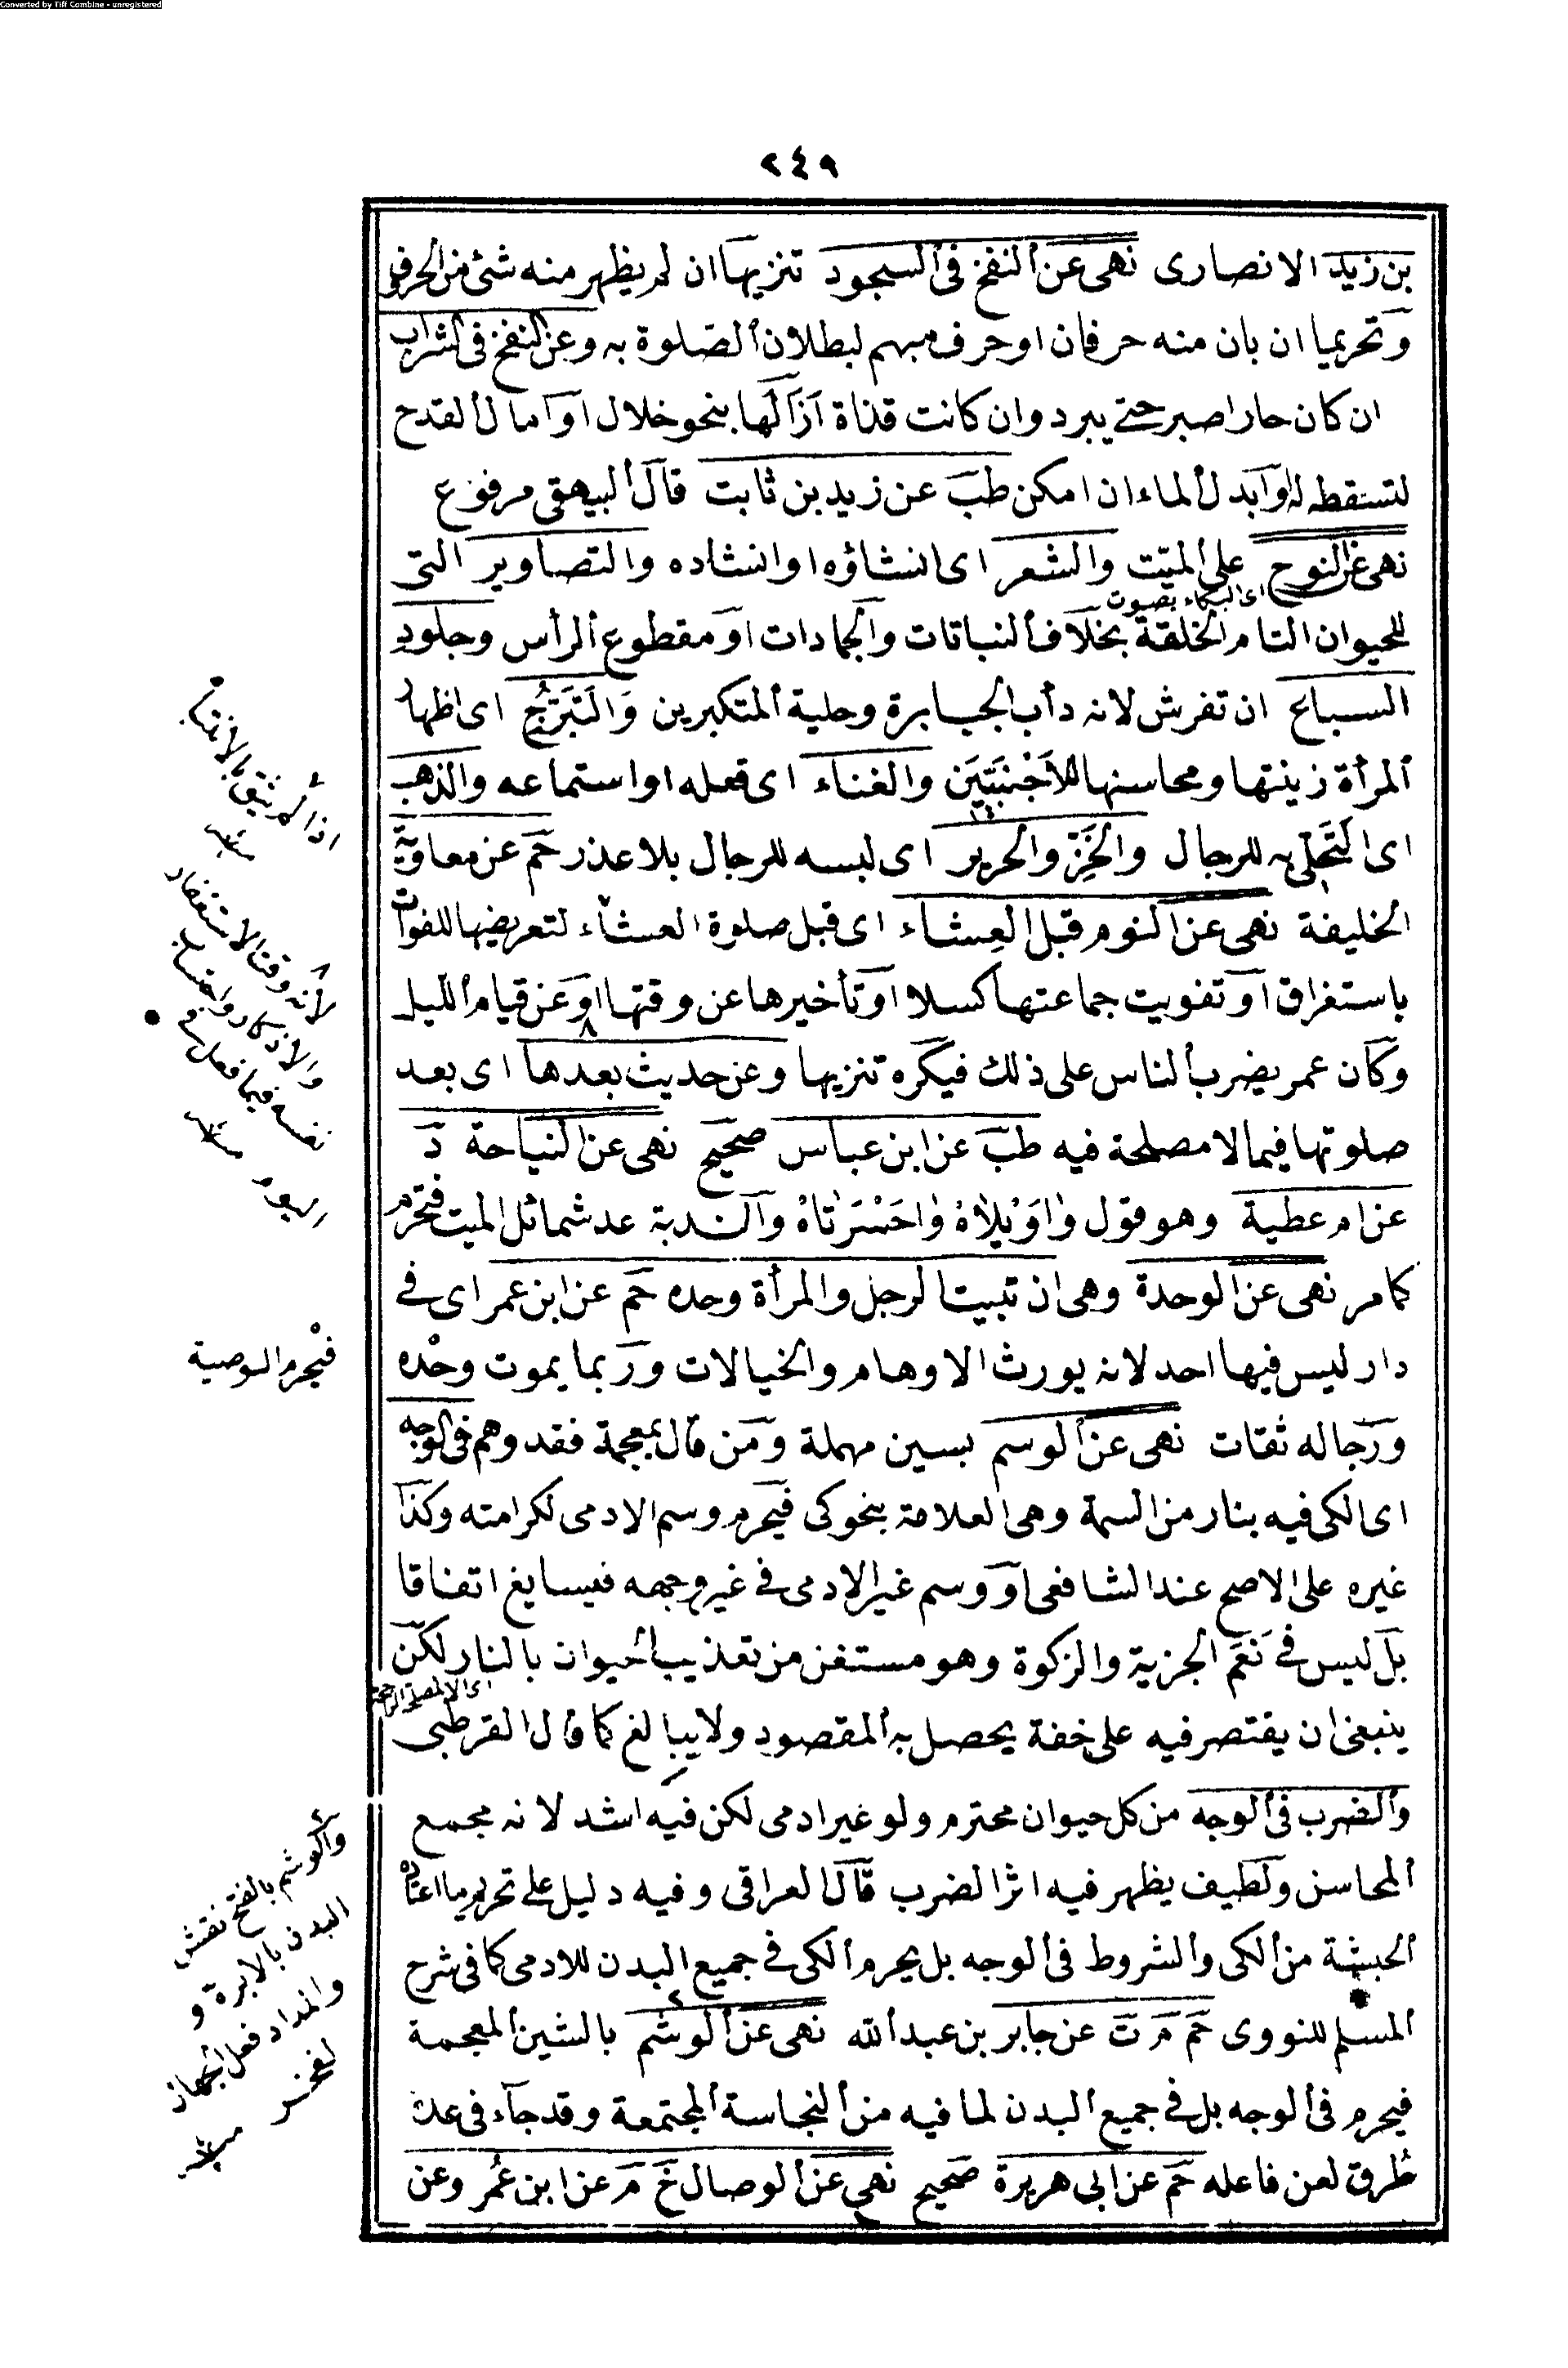 Converted by Tiff Combine - unregistered
٢٤٩
بن زيد الانصارى نهى عن النفخ فى السجود تنزيها ان لم يظهر منه شئ من الحرف
وتحريما ان بان منه حرفان او حرف مبهم لبطلان الصلوة به وعن النفخ فى الشراب
ان كان حارا صبر حتى يبرد وان كانت قذاة ازالها بنحو خلال او امال القدح
لتسقط له او ابدل الماء ان امكن طب عن زيد بن ثابت قال البيهقى مرفوع
نهى عن النوح على الميّت والشعر اى انشاؤه او انشاده والتصاوير التى
اى البكاء بصوت
للحيوان التام الخلقة بخلاف النباتات والجمادات او مقطوع الرأس وجلود
السباع ان تفرش لانه دأب الجبابرة وحلية المتكبرين وَالتَبَرُّج اى اظهار
المرأة زينتها ومحاسنها للأَجْنَبِيّيَن والغناء اى فعله او استماعه والذهب
اى التَّحَلِّى به للرجال والخَزّ والحرير اى لبسه للرجال بلا عذر حم عن معاوية
الخليفة نهى عن النوم قبل العِشاء اى قبل صلوة العشاء لتعريضها للفوات
باستغراق او تفويت جماعتها كسلا او تأخيرها عن وقتها او عن قيام الليل
وكان عمر يضرب الناس على ذلك فيكره تنزيها وعن حديث بعدها اى بعد
صلوتها فيما لا مصلحة فيه طب عن ابن عباس صحيح نهى عن النياحة د
عن ام عطية وهو قول واوَيْلاهْ واحَسْرَتاهْ والندبة عد شمائل الميت فتحرم
كما مر نهى عن الوحدة وهى ان تبيت الرجل والمرأة وحده حم عن ابن عمر اى فى
دار ليس فيها احد لانه يورث الاوهام والخيالات وربما يموت وحْده
ورجاله ثقات نهى عن الوسم بسين مهملة ومن قال بمعجمة فقد وهم فى الوجه
اى الكى فيه بنار من السمة وهى العلامة بنحو كى فيحرم وسم الادمى لكرامته وكذا
غيره على الاصح عند الشافعى او وسم غير الادمى فى غير وجهه فيسايغ اتفاقا
بل ليس فى نَعَم الجزية والزكوة وهو مستغن من تعذيب الحيوان بالنار لكن
ينبغى ان يقتصر فيه على خفة يحصل به المقصود ولا يبالغ كما قال القرطبى
والضرب فى الوجه من كل حيوان محترم ولو غير ادمى لكن فيه اشد لانه مجمع
المحاسن ولطيف يظهر فيه اثر الضرب قال العراقى وفيه دليل على تحريم ما اعتاده
الحبشة من الكى والشروط فى الوجه بل يحرم الكى فى جميع البدن للادمى كما فى شرح
المسلم للنووى حم م ت عن جابر بن عبد الله نهى عن الوشم بالشين المعجمة
فيحرم فى الوجه بل فى جميع البدن لما فيه من النجاسة المجتمعة وقد جاء فى عدة
طُرق لعن فاعله حم عن ابى هريرة صحيح نهى عن الوصال خ م عن ابن عُمر وعن
اذا لم يثق بالانتباه
لأنه وقت الاستغفار
والاذكار واحتساب
نفسه فيما فعل فى
اليوم
فيحرم الوصية
والوشم بالفتح نقش
البدن بالابرة و
والمداد فعل الجهاز